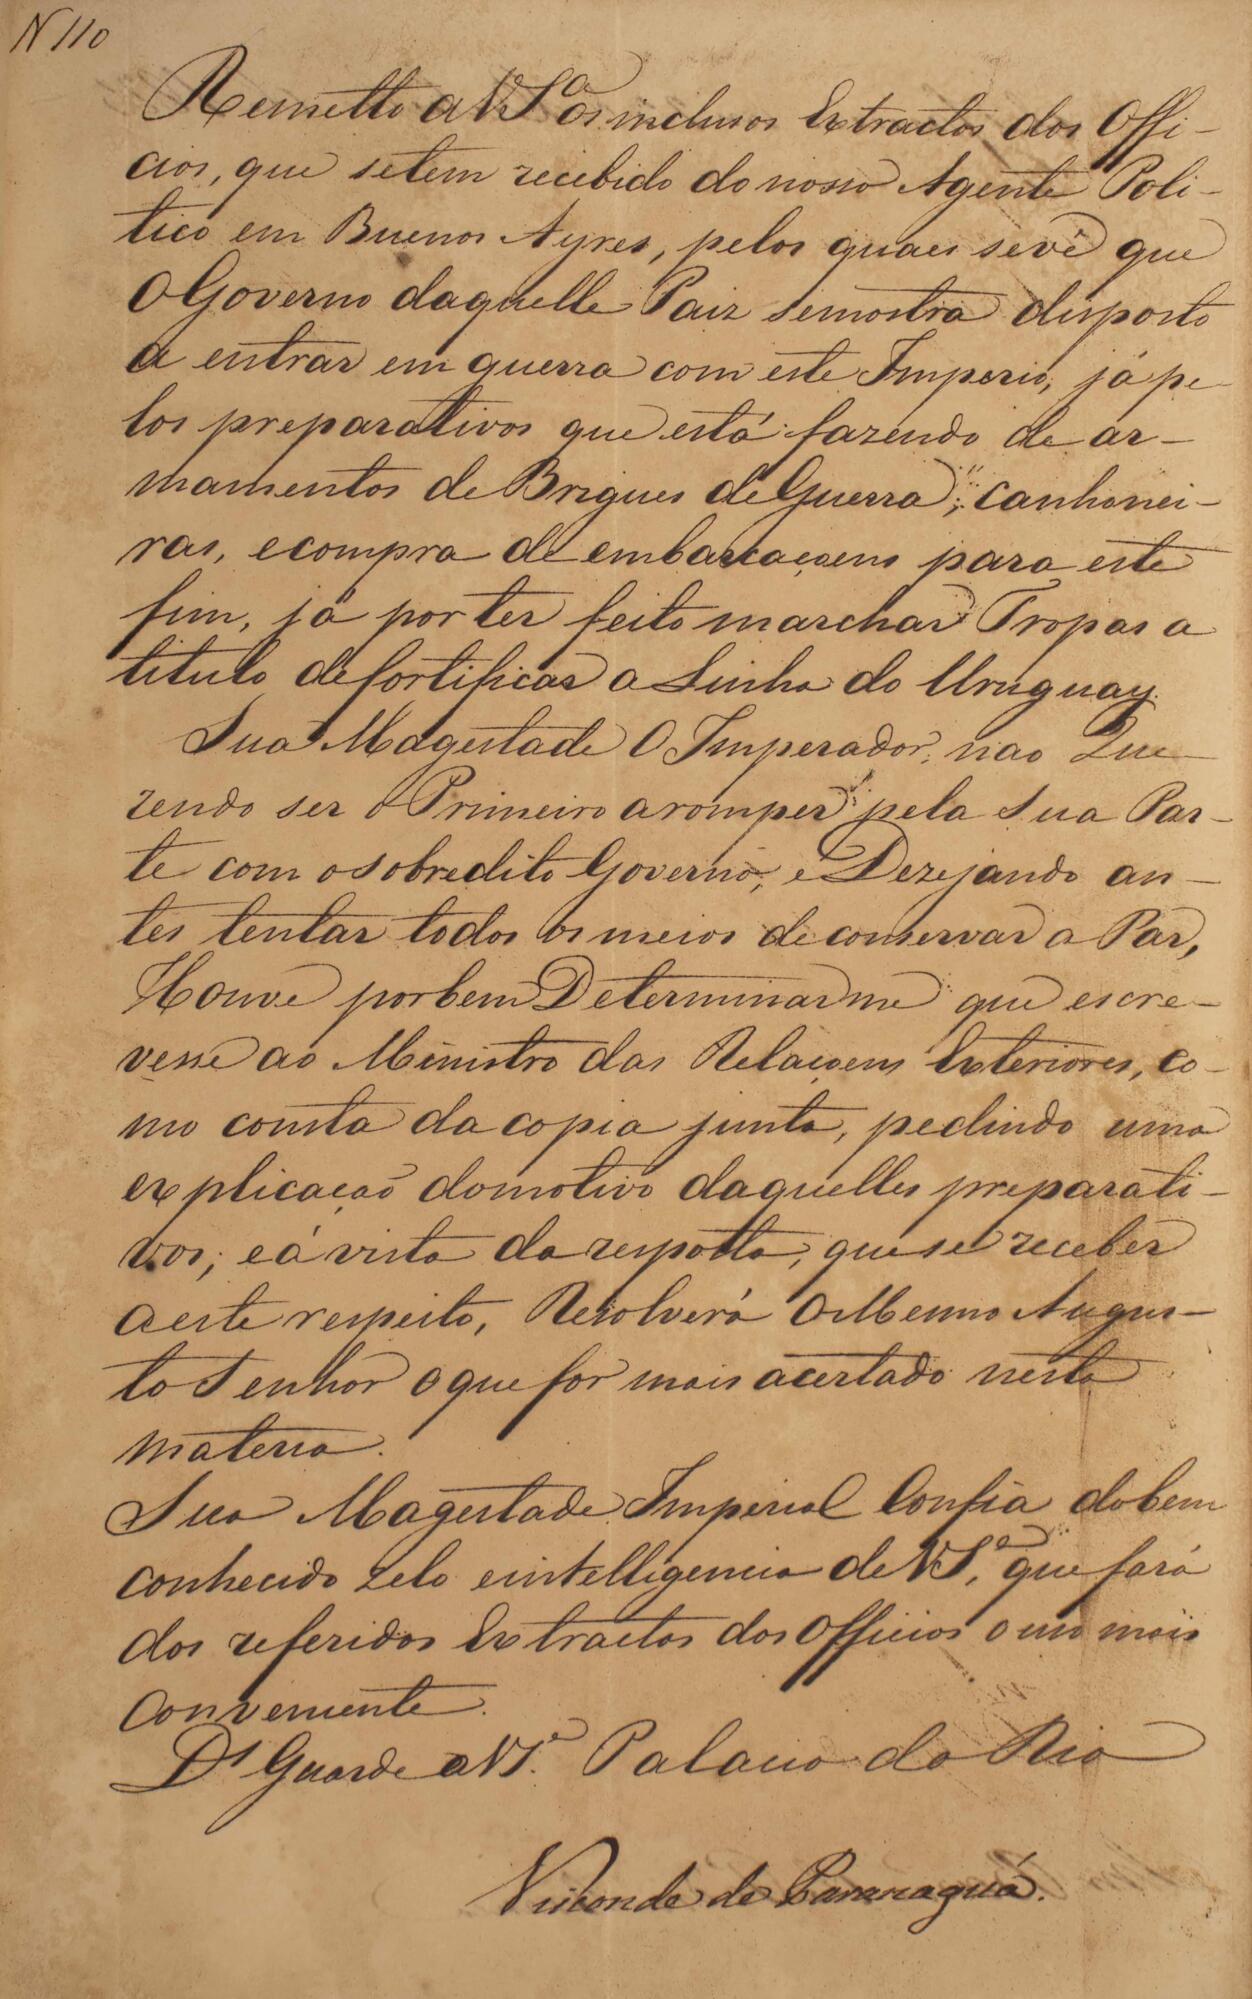 N 110
Remetto a V Sª os inclusos Extractos dos Offi-
cios, que se tem recebido do nosso Agente Poli-
tico em Buenos Ayres, pelos quaes se vê que
O Governo daquelle Paiz se mostra disposto
a entrar em guerra com este Imperio, já pe-
los preparativos que está fazendo de ar-
mamentos de Brigues de Guerra, canhonei-
ras, e compra de embarcaçoens para este
fim, já por ter feito marchar Tropas a
titulo de fortificar a Linha do Uruguay.
Sua Magestade O Imperador, nao Que-
rendo ser o Primeiro a romper pela Sua Par-
te com o sobredito Governo, e Dezejando an-
tes tentar todos os meios de conservar a Paz,
Houve por bem Determinar me que escre-
vesse ao Ministro das Relaçoens Exteriores, co-
mo consta da copia junta, pedindo uma
explicação do motivo daquelles preparati-
vos; e á vista da resposta, que se receber
a este respeito, Resolverá O Mesmo Augus-
to Senhor o que for mais acertado nesta
materia.
Sua Magestade Imperial Confia do bem
conhecido zelo e intelligencia de V Sª, que fará
dos referidos Extractos dos Officios o uso mais
conveniente.
Ds Guarde a V Sª. Palacio do Rio
Visconde de Paranaguá.